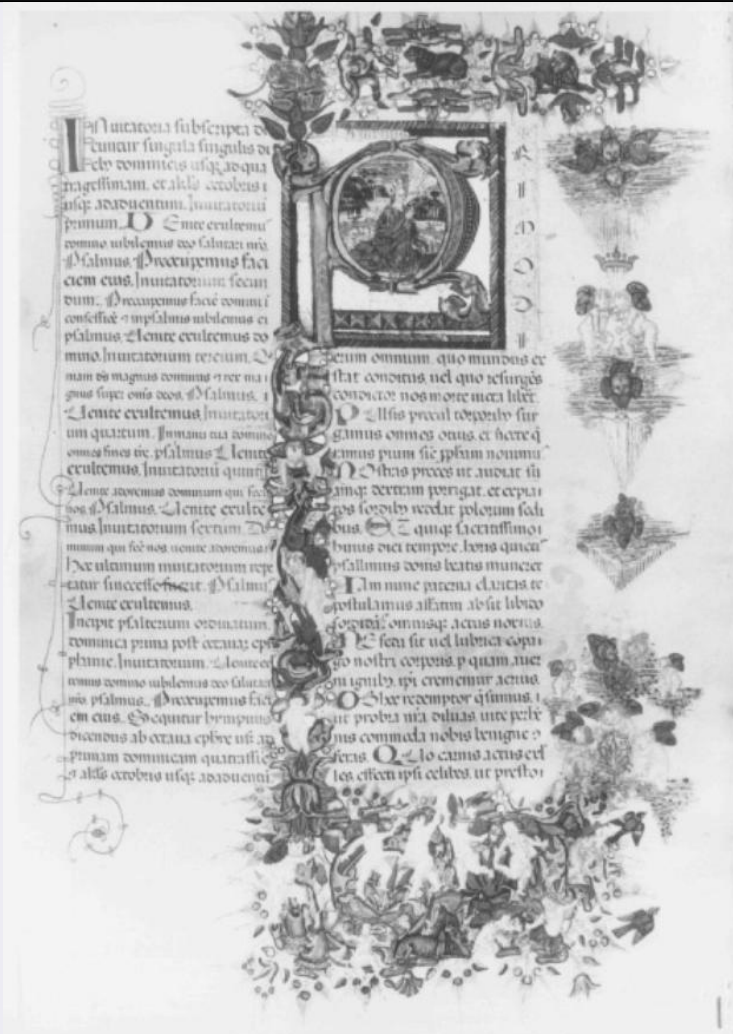 Inuitatoria subscripta di
cuntur singula singulis di
ebꝫ dominicis usqꝫ ad qua
dragessimam. et a kłis octobris i
usqꝫ ad aduentum. Inuitatoriū
primum. Uenite exultemuˢ
domino iubilemus deo salutari nr̄o.
Psalmus. Preocupemus faci
ciem eius. Inuitatorium secun
dum. Preocupemus faciē domini i
confessiōe ⁊ in psalmis iubilemus ei
psalmus. Uenite exultemus do
mino. Inuitatorium tercium. Q
niam ds̄ magnus dominus ⁊ rex ma
gnus super om̄s deos. Psalmus.
Uenite exultemus. Inuitatori
um quartum. In manu tua domine
omnes fines tr̄e. psalmus Uenite
exultemus. Inuitatoriū quintū
Uenite adoremus dominum qui fecit
nos. Psalmus. Uenite exulte
mus. Inuitatorium sextum. Do
minum qui fecˢ nos uenite adoremus.
Hec ultimum inuitatorium repe
tatur si necesse fuerit. Psalmus
Uenite exultemus.
Incipit psalterium ordinatum.
dominica prima post octauaˢ epi
phanie. Inuitatorium. Uenite ex
temus domino iubilemus deo salutari
nr̄o. psalmus. Preocupemus faci
em eius. Sequitur hympnus
dicendus ab octaua ephīe usqꝫ ad
primam dominicam quadragessīe
⁊ a kłis octobris usqꝫ ad aduentū
P
RIMO DI
erum omnium. quo mundus ex
stat conditus. uel quo resurgēs
conditor nos morte uicta liber
Pulsis procul torporibꝫ sur
gamus omnes otius. et nocte q̄
ramus pium sic ꝓpham nouimuˢ
Nostras preces ut audiat su
amqꝫ dextram porrigat. et expia
tos sordibꝫ reddat polorum sedi
bus. Ut quiqꝫ sacratissimo
huius diei tempore. horis quietiˢ
psallimus donis beatis muneret
Iam nunc paterna claritas te
postulamus affatim absit libido
sordidās̄ omnisqꝫ actus noxius.
Ne feda sit uel lubrica compa
go nostri corporis. p quam auer
ni ignibꝫ. ip̄i crememur acrius.
Ob hoc redemptor q̄sumus.
ut probra nr̄a diluas. uite perhē
nis commoda nobis benigne
feras. Quo carnis actus exu
les effecti ipsi celibes. ut prestoi